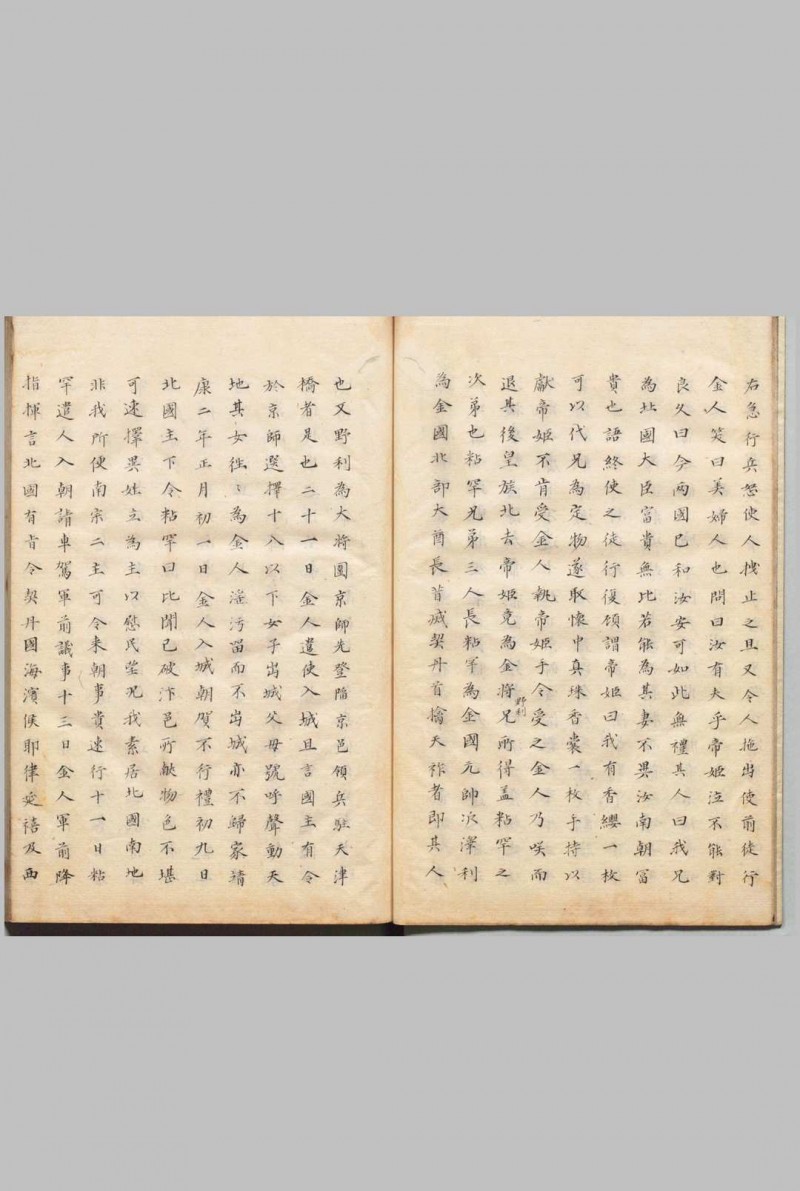 右急行兵怒使人拽止之且又令人拖出使前徒行
金人笑曰美婦人也問曰汝有夫乎帝姬泣不能對
良久曰今兩國已和汝安可如此無禮其人曰我兄
為北國大臣富貴無比若能為其妻不異汝南朝富
貴也語終使之徒行復顧謂帝姬曰我有香纓一枚
可以代兄為定物遂取懷中真珠香裳一枚手持以
獻帝姬不肯受金人執帝姬手令受之金人乃咲而
退其後皇族北去帝姬竟為金將兄野利所得盖粘罕之
次弟也粘罕兄弟三人長粘罕為金國元帥次澤利
為金國北部大酋長昔滅契丹首擒天祚者即其人
也又野利為大將圍京師先登陷京邑領兵駐天津
橋者是也二十一日金人遣使入城且言國主有令
於京師選擇十八以下女子出城父母號呼聲動天
地其女往〻為金人淫污畱而不出城亦不歸家靖
康二年正月初一日金人入城朝賀不行禮初九日
北國主下令粘罕曰比聞已破汴邑所献物色不堪
可速擇異姓立為主以慰民望况我素居北國南地
非我所便南宗二主可令来朝事貴速行十一日粘
罕遣人入朝請車駕軍前議事十三日金人軍前降
指揮言北國有旨令契丹國海濱侯耶律延禧及西